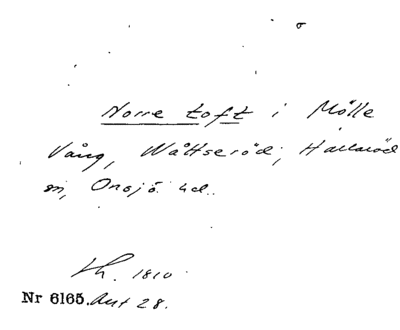 Norre toft i Mölle
Vång, Wättseröd; Hallaröd
sn, Onsjö hd.
Lh. 1810
Nr 6165. Akt 28.